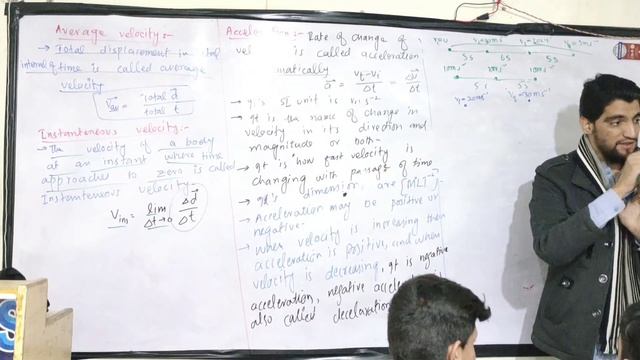 Average velocity:-
→ Total displacement in total
interval of time is called average
velocity
Vav = Total d / total t
Instantaneous velocity:-
→ The velocity of a body
at an instant where time
approaches to zero is called
Instantaneous velocity.
Vins = lim Δt→0 Δd / Δt
Rate of change of
vel is called acceleration
matically a = Vf - Vi / Δt = Δv / Δt
SI unit is m s⁻²
→ It is the name of change in
velocity in its direction and
magnitude or both-
→ It is how fast velocity is
changing with passage of time
→ It's dimension, are
→ Acceleration may be positive or
negative-
→ When velocity is increasing then
acceleration is positive, and when
velocity is decreasing, It is negative
acceleration, negative
also called
5s 5s 5s
10ms⁻¹ 10ms⁻¹
5s 5s